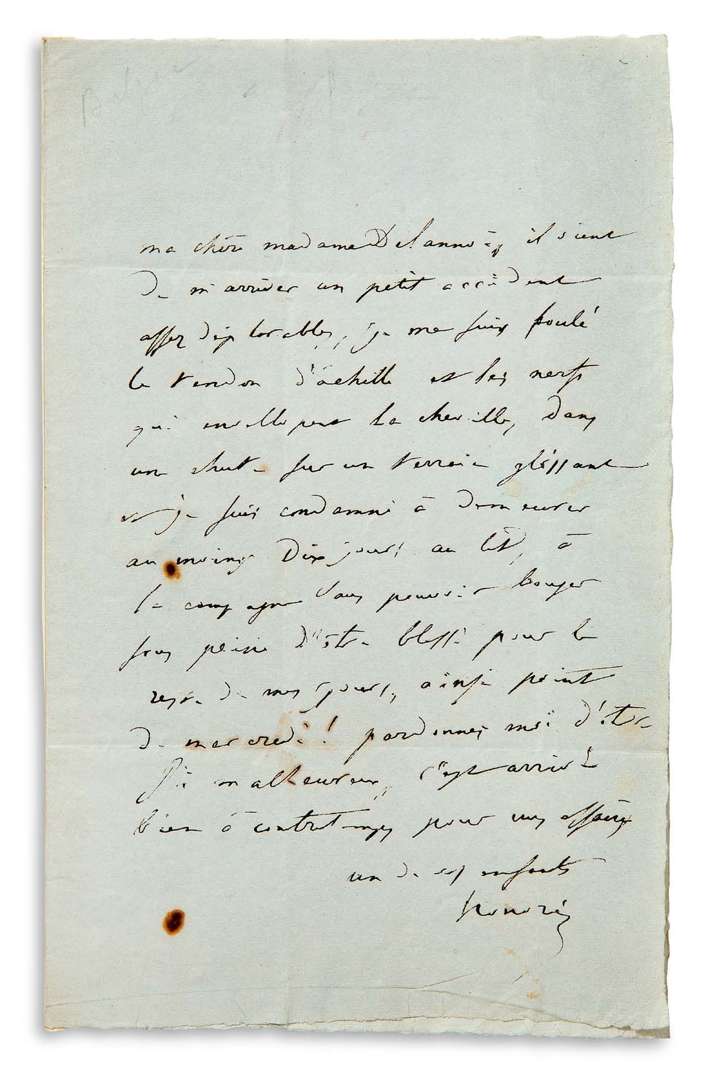 Balzac
ma chère madame Delannoy, il vient
de m'arriver un petit accident
assez déplorable, je me suis foulé
le tendon d'achille et les nerfs
qui enveloppent la cheville, dans
une chute sur un terrain glissant
et je suis condamné à demeurer
au moins dix jours au lit, à
la campagne sans pouvoir bouger
sous peine d'être blessé pour le
reste de mes jours, ainsi point
de mercredi ! pardonnez moi d'être
si malheureux, c'est arrivé
bien à contretemps pour mes affaires
un de vos enfants
honoré